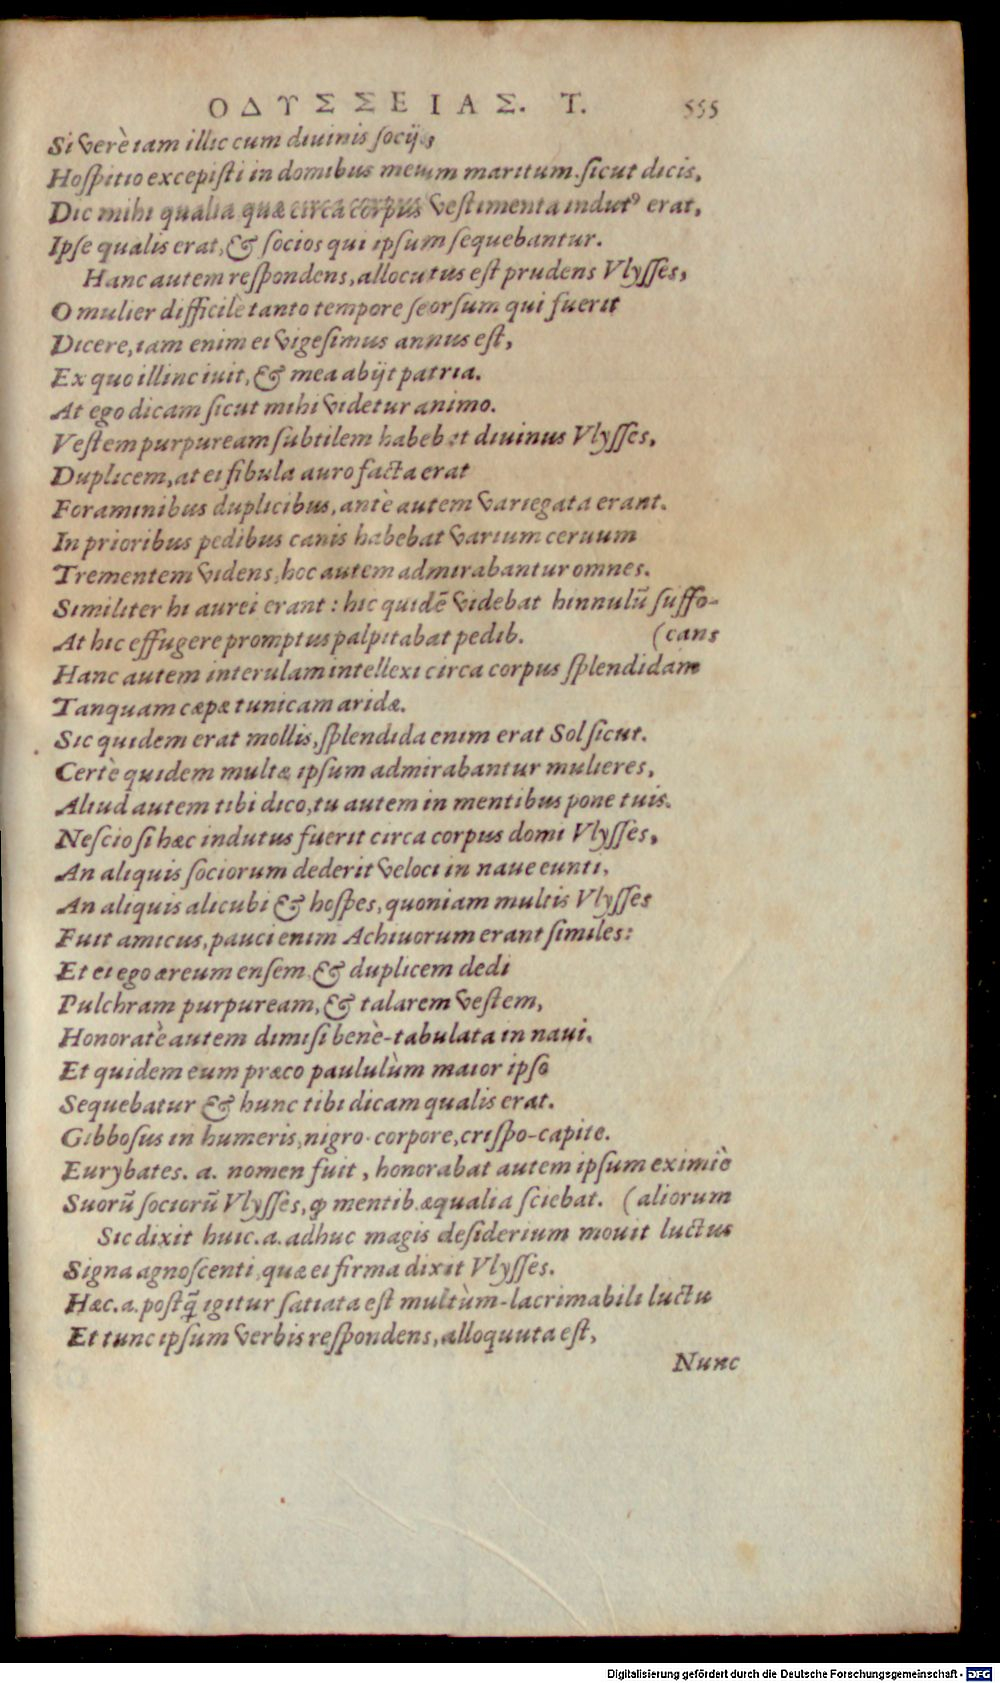 ΟΔΥΣΣΕΙΑΣ. Τ. 555
Si verè iam illic cum diuinis socijs,
Hospitio excepisti in domibus meum maritum sicut dicis,
Dic mihi qualia quæ circa corpus vestimenta indutꝰ erat,
Ipse qualis erat, & socios qui ipsum sequebantur.
Hanc autem respondens, allocutus est prudens Vlysses,
O mulier difficilè tanto tempore seorsum qui fuerit
Dicere, iam enim ei vigesimus annus est,
Ex quo illinc iuit, & mea abijt patria.
At ego dicam sicut mihi videtur animo.
Vestem purpuream subtilem habebat diuinus Vlysses,
Duplicem, at ei fibula auro facta erat
Foraminibus duplicibus, antè autem variegata erant.
In prioribus pedibus canis habebat varium ceruum
Trementem videns, hoc autem admirabantur omnes.
Similiter hi aurei erant: hic quidē videbat hinnulū suffo-
At hic effugere promptus palpitabat pedib. (cans
Hanc autem interulam intellexi circa corpus splendidam
Tanquam cæpæ tunicam aridæ.
Sic quidem erat mollis, splendida enim erat Sol sicut.
Certè quidem multæ ipsum admirabantur mulieres,
Aliud autem tibi dico, tu autem in mentibus pone tuis.
Nescio si hæc indutus fuerit circa corpus domi Vlysses,
An aliquis sociorum dederit veloci in naue eunti,
An aliquis alicubi & hospes, quoniam multis Vlysses
Fuit amicus, pauci enim Achiuorum erant similes:
Et ei ego æreum ensem & duplicem dedi
Pulchram purpuream, & talarem vestem,
Honoratè autem dimisi benè-tabulata in naui.
Et quidem eum præco paululùm maior ipso
Sequebatur & hunc tibi dicam qualis erat.
Gibbosus in humeris, nigro-corpore, crispo-capite.
Eurybates. a. nomen fuit, honorabat autem ipsum eximiè
Suorū sociorū Vlysses, ꝙ mentib. æqualia sciebat. (aliorum
Sic dixit huic. a. adhuc magis desiderium mouit luctus
Signa agnoscenti, quæ ei firma dixit Vlysses.
Hæc. a. postq̄ igitur satiata est multùm-lacrimabili luctu
Et tunc ipsum verbis respondens, alloquuta est,
Nunc
Digitalisierung gefördert durch die Deutsche Forschungsgemeinschaft - DFG